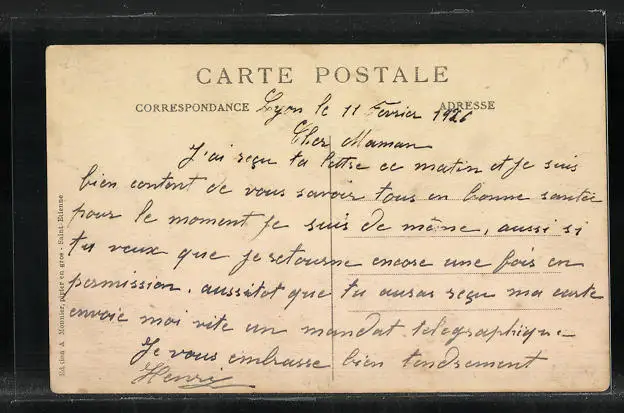 CARTE POSTALE
CORRESPONDANCE
ADRESSE
Lyon le 11 Fevrier 1926
Cher Maman
J'ai reçu ta lettre ce matin et je suis
bien content de vous savoir tous en bonne santée
pour le moment je suis de même, aussi si
tu veux que je retourne encore une fois en
permission. aussitot que tu auras reçu ma carte
envoie moi vite un mandat telegraphique
Je vous embrasse bien tendrement
Henri
Edition A Monnier, papier en gros - Saint-Etienne